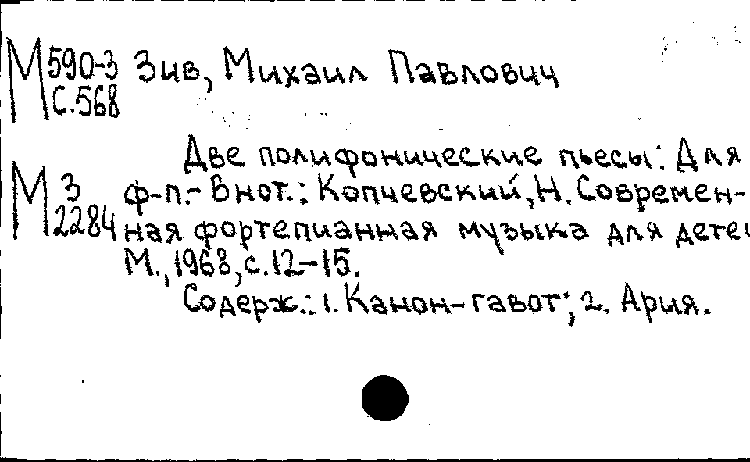 М 590-3 Зив, Михаил Павлович
С.568
Две полифонические пьесы: Для
М 3 ф-п.- В нот.: Копчевский, Н. Современ-
2284 ная фортепианная музыка для детей
М., 1968, с.12-15.
Содерж.: 1. Канон-гавот; 2. Ария.